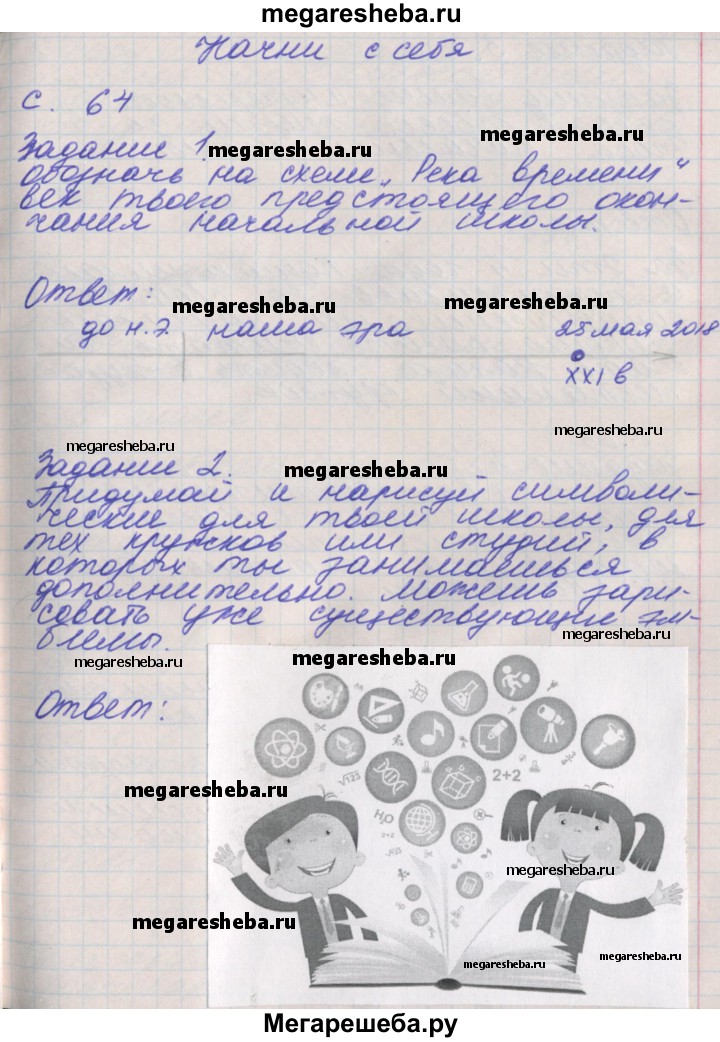 megaresheba.ru
Начни с себя
с. 64
megaresheba.ru
Задание 1. megaresheba.ru
обозначь на схеме „Река времени“
век твоего предстоящего окон-
чания начальной школы.
Ответ:
megaresheba.ru megaresheba.ru
до н.э. наша эра 25 мая 2018
XXI в
megaresheba.ru
megaresheba.ru
Задание 2. megaresheba.ru
Придумай и нарисуй символи-
ческие для твоей школы, для
тех кружков или студий, в
которых ты занимаешься
дополнительно. Можешь зари-
совать уже существующие эм-
блемы. megaresheba.ru
megaresheba.ru megaresheba.ru
Ответ:
√123
2+2
megaresheba.ru
H₂O
2+2
√123
megaresheba.ru
megaresheba.ru
megaresheba.ru
megaresheba.ru
Мегарешеба.ру